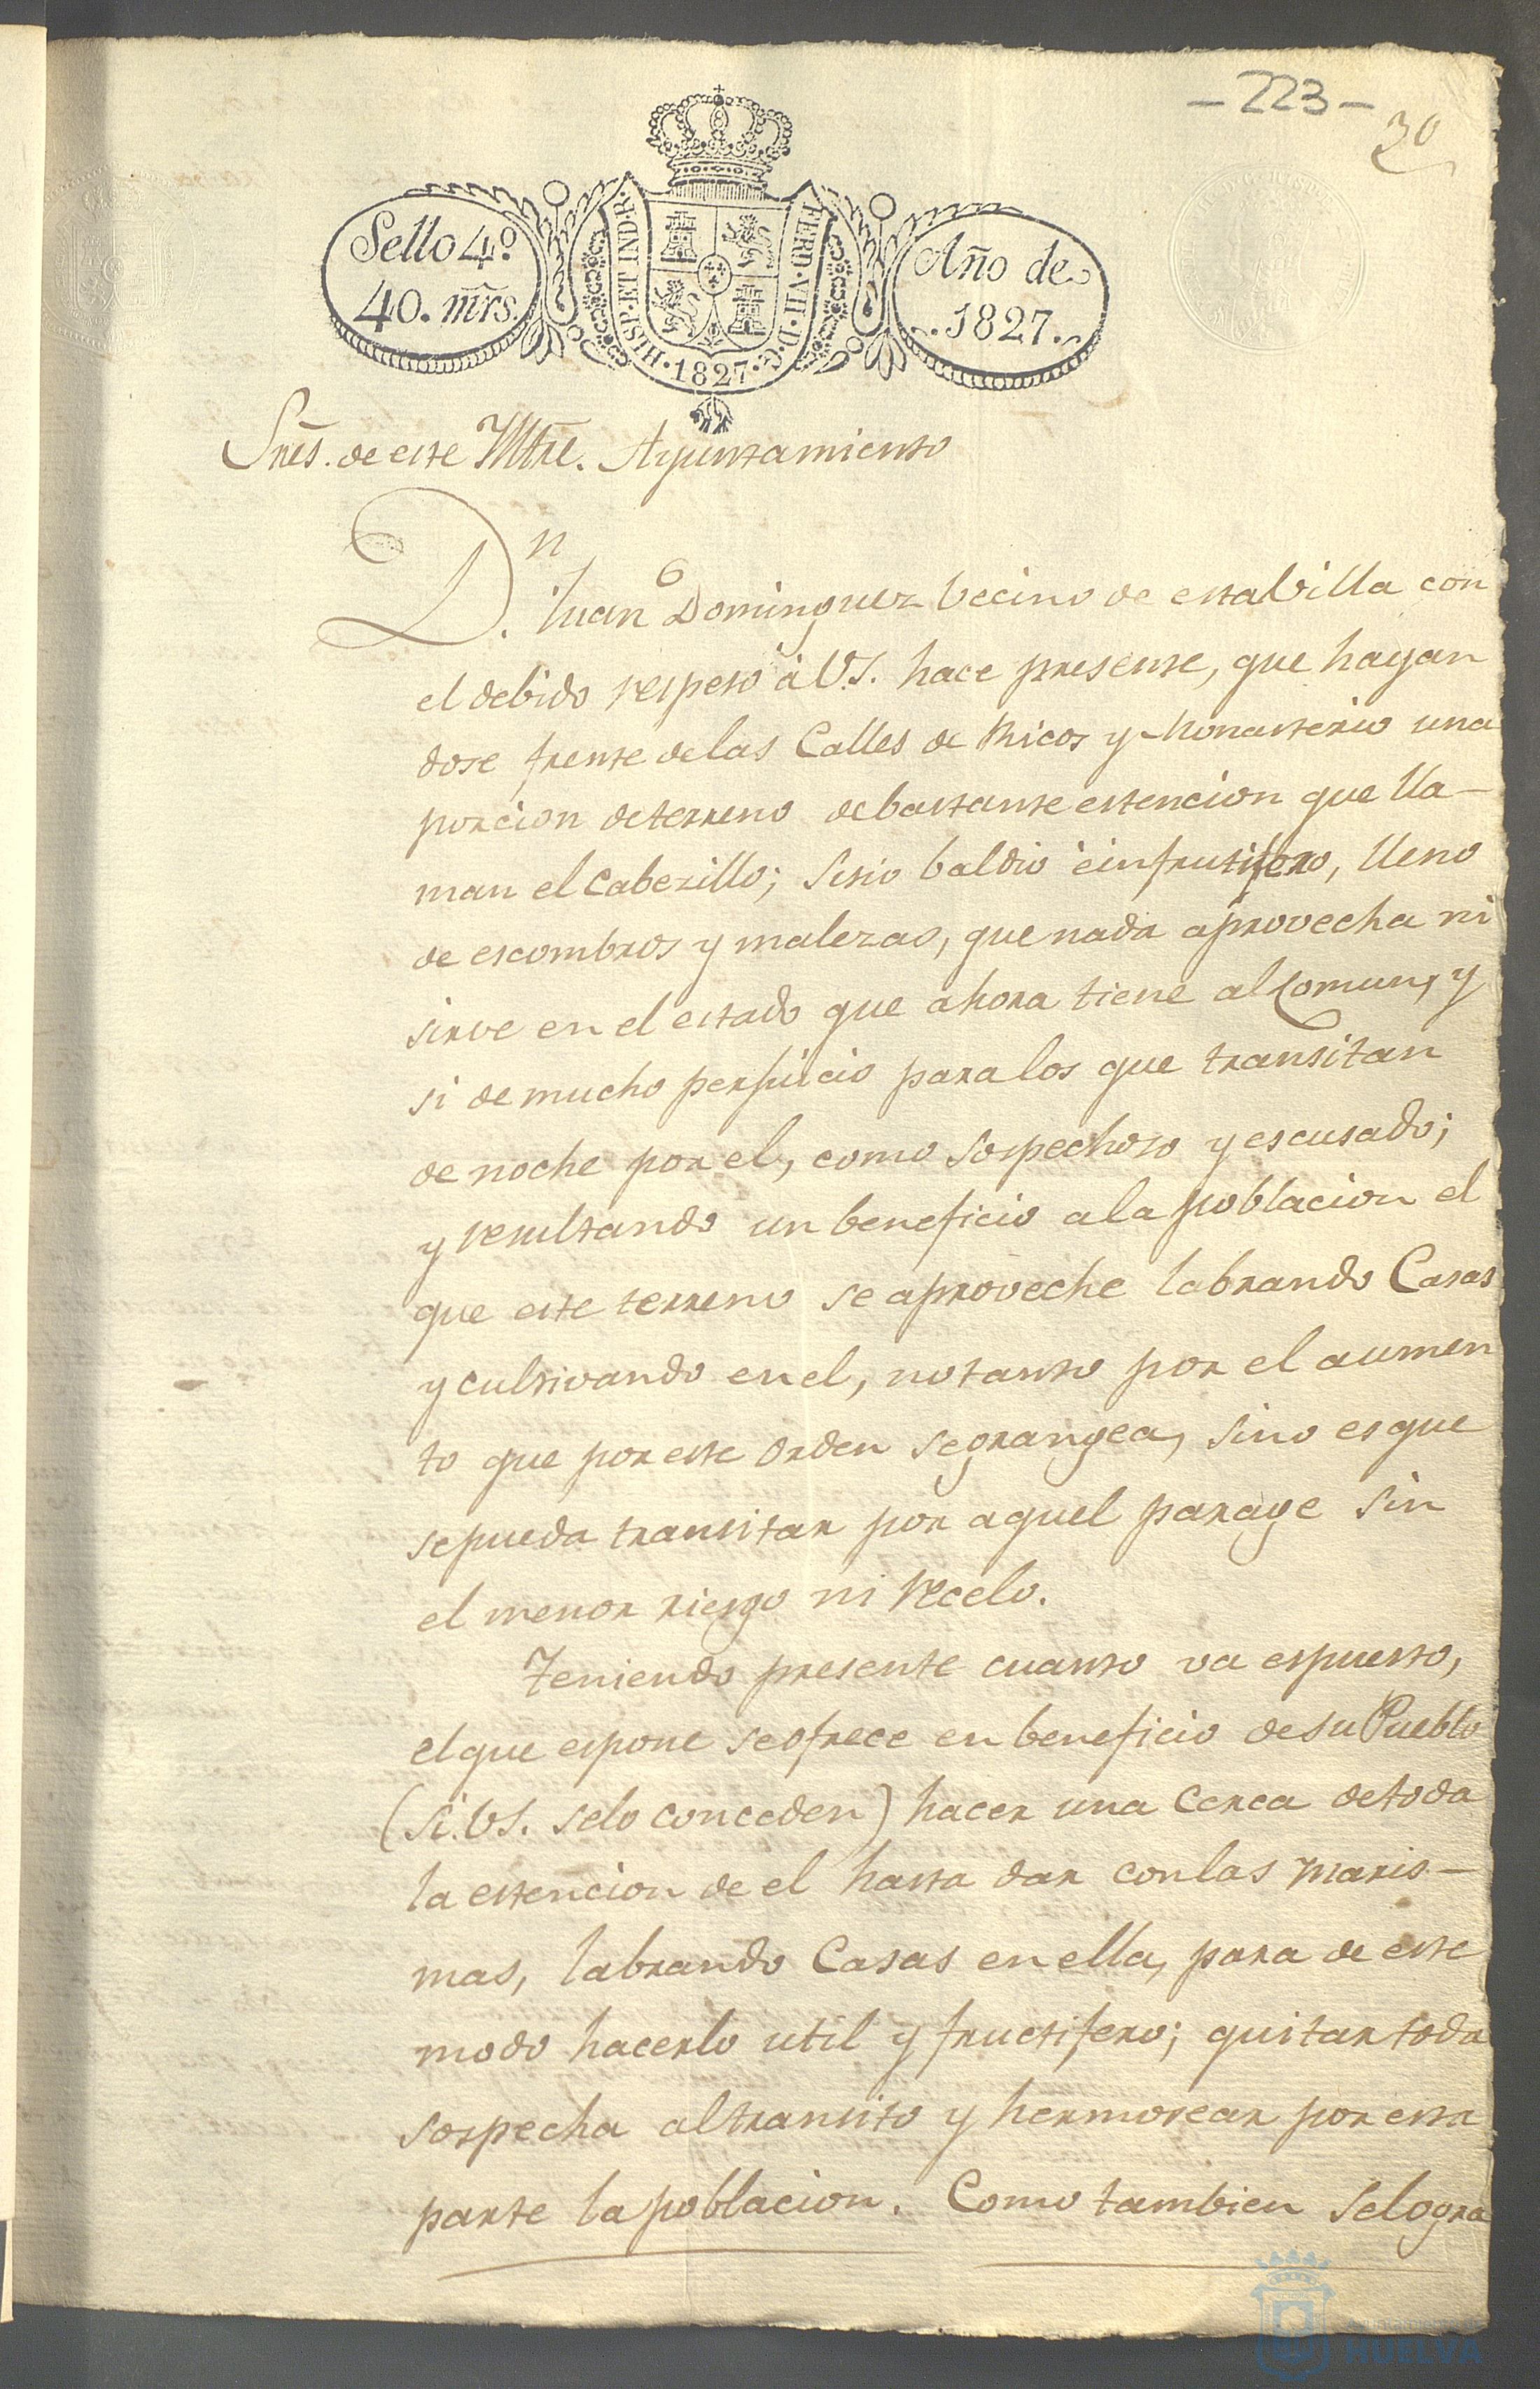 - 223 -
30
Sello 4º
40. mrs.
HISP. ET IND. R.
FERD. VII. D. G.
· 1827 ·
Año de
1827.
Sres. de este Yltre. Ayuntamiento
D.n Juan Dominguez becino de esta billa con
el debido respeto à V.S. hace presente, que hayan
dose frente de las Calles de Ricos y Monasterio una
porcion de terreno de bastante estencion que lla-
man el Cabezillo; sitio baldio è infrutifero, lleno
de escombros y malezas, que nada aprovecha ni
sirve en el estado que ahora tiene al Comun, y
si de mucho perjuicio para los que transitan
de noche por el, como sospechoso y escusado;
y resultando un beneficio a la poblacion el
que este terreno se aproveche labrando Casas
y cultivando en el, no tanto por el aumen
to que por este orden se grangea, sino es que
se pueda transitar por aquel parage sin
el menor riesgo ni recelo.
Teniendo presente cuanto va espuesto,
el que espone se ofrece en beneficio de su Pueblo
(si VS. se lo conceden) hacer una cerca de toda
la estencion de el hasta dar con las maris-
mas, labrando Casas en ella, para de este
modo hacerlo util y fructifero; quitar toda
sospecha al transito y hermosear por esta
parte la poblacion. Como tambien se logra
HUELVA